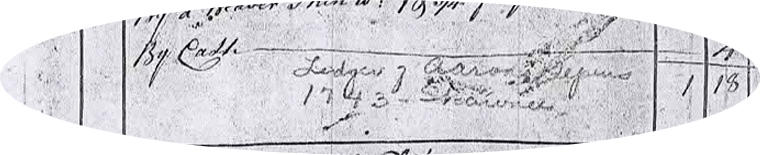 By a Beaver Skin wt
By Cash
Ledger of Aaron Depuis 1 18
1743 - Shawnee